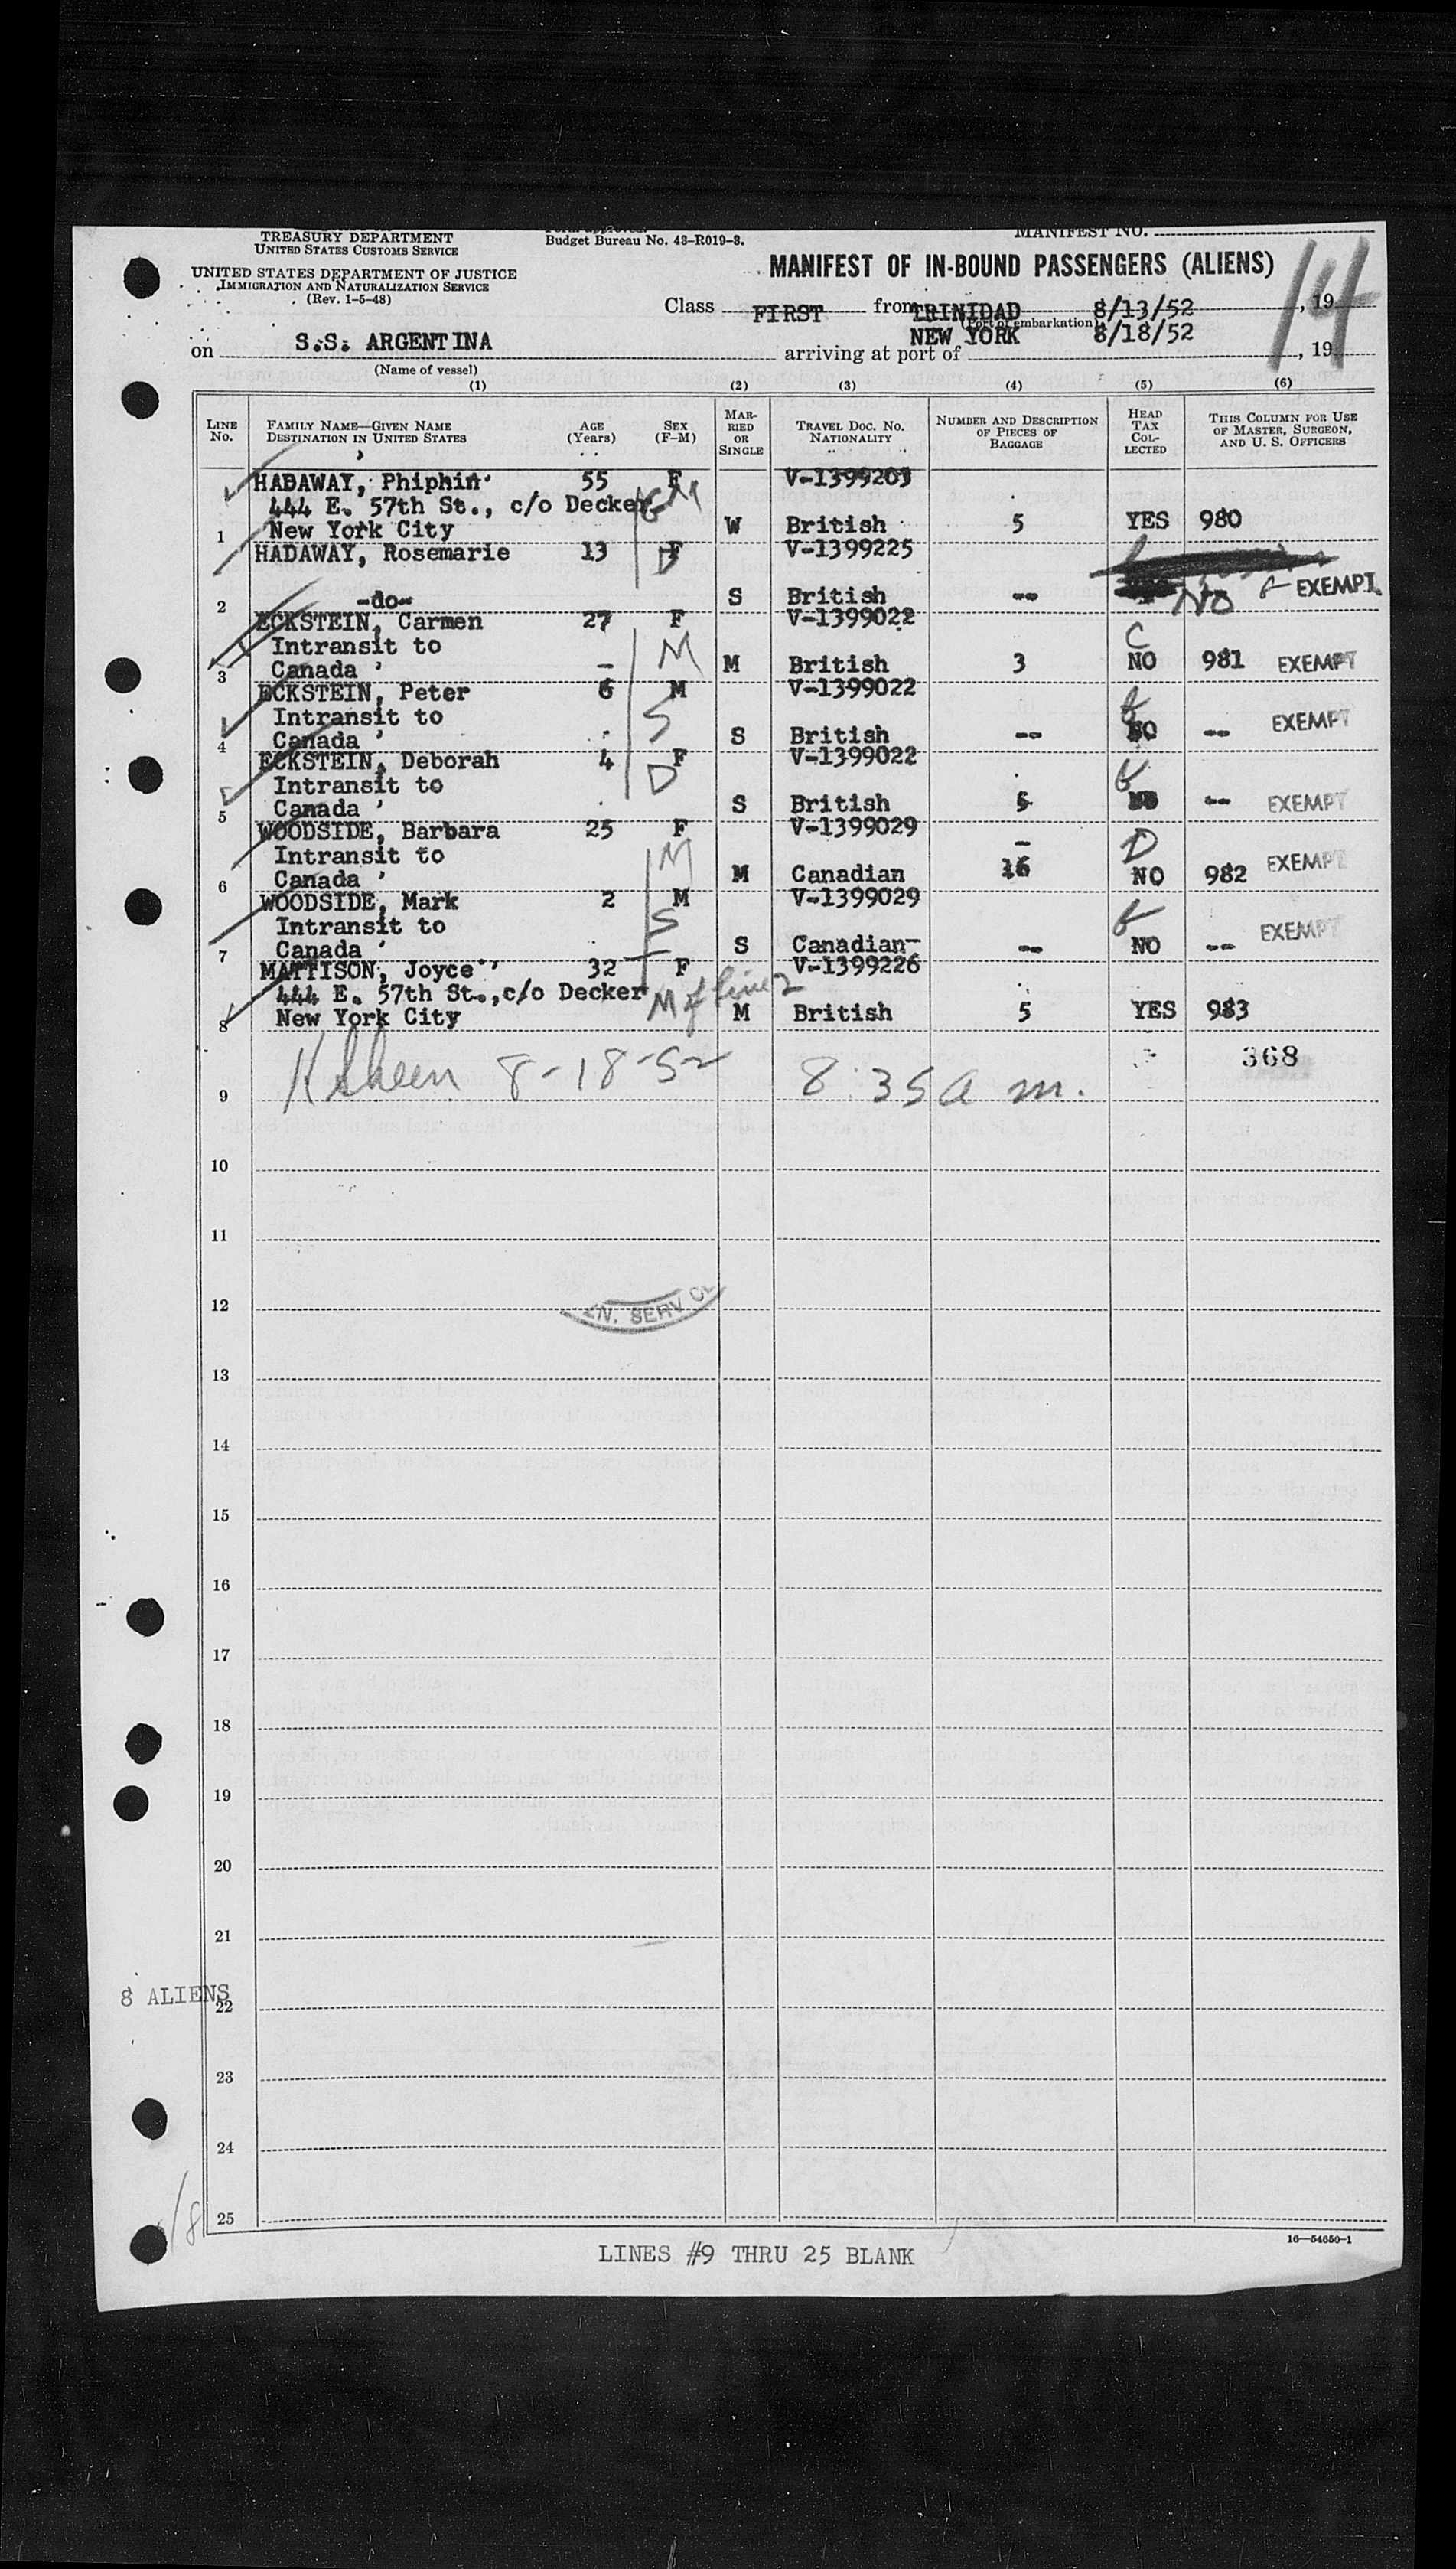 TREASURY DEPARTMENT
UNITED STATES CUSTOMS SERVICE
Form approved.
Budget Bureau No. 43-R019-3.
MANIFEST NO.
UNITED STATES DEPARTMENT OF JUSTICE
IMMIGRATION AND NATURALIZATION SERVICE
(Rev. 1-5-48)
MANIFEST OF IN-BOUND PASSENGERS (ALIENS)
14
Class FIRST from TRINIDAD 8/13/52, 19
(Port of embarkation)
on S.S. ARGENTINA arriving at port of NEW YORK 8/18/52, 19
(Name of vessel)
(1) (2) (3) (4) (5) (6)
LINE No. FAMILY NAME—GIVEN NAME DESTINATION IN UNITED STATES AGE (Years) SEX (F-M) MARRIED OR SINGLE TRAVEL DOC. NO. NATIONALITY NUMBER AND DESCRIPTION OF PIECES OF BAGGAGE HEAD TAX COLLECTED THIS COLUMN FOR USE OF MASTER, SURGEON, AND U. S. OFFICERS
HADAWAY, Phiphin 55 F V-1399203
444 E. 57th St., c/o Decker GM
1 New York City W British 5 YES 980
HADAWAY, Rosemarie 13 F V-1399225
D
2 -do- S British -- NO EXEMPT
ECKSTEIN, Carmen 27 F V-1399022
Intransit to M C
3 Canada M British 3 NO 981 EXEMPT
ECKSTEIN, Peter 6 M V-1399022
Intransit to S
4 Canada S British -- NO -- EXEMPT
ECKSTEIN, Deborah 4 F V-1399022
Intransit to D
5 Canada S British 5 NO -- EXEMPT
WOODSIDE, Barbara 25 F V-1399029
Intransit to M D
6 Canada M Canadian 16 NO 982 EXEMPT
WOODSIDE, Mark 2 M V-1399029
Intransit to S
7 Canada S Canadian -- NO -- EXEMPT
MATTISON, Joyce 32 F V-1399226
444 E. 57th St.,c/o Decker M of line 2
8 New York City M British 5 YES 983
368
9 8-18-52 8:35 a m.
10
11
12 EN. SERV
13
14
15
16
17
18
19
20
21
8 ALIENS
22
23
24
25
/8
16—54650-1
LINES #9 THRU 25 BLANK